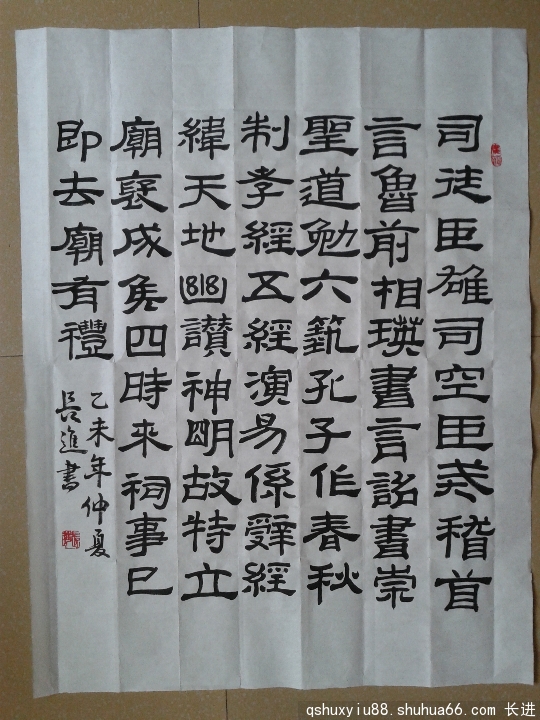 司徒臣雄司空臣戒稽首
言魯前相瑛書言詔書崇
聖道勉六藝孔子作春秋
制孝經五經演易係辭經
緯天地幽讚神明故特立
廟褒成侯四時來祠事已
即去廟有禮
乙未年仲夏
長進書
qshuxyiu88.shuhua66.com 长进